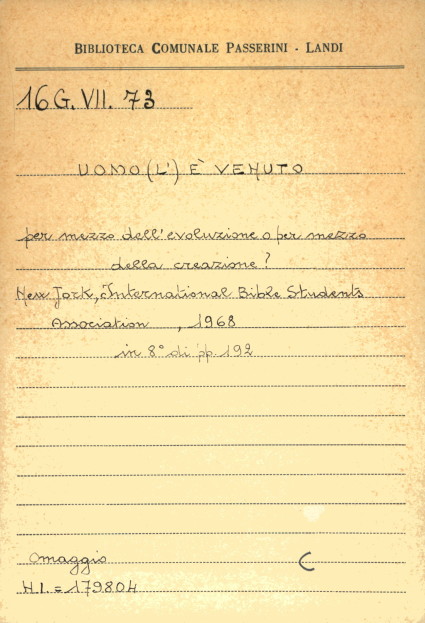 BIBLIOTECA COMUNALE PASSERINI - LANDI
16 G. VII. 73
UOMO (L') È VENUTO
per mezzo dell'evoluzione o per mezzo
della creazione?
New York, International Bible Students
Association , 1968
in 8° di pp. 192
Omaggio C
N.I. = 179804